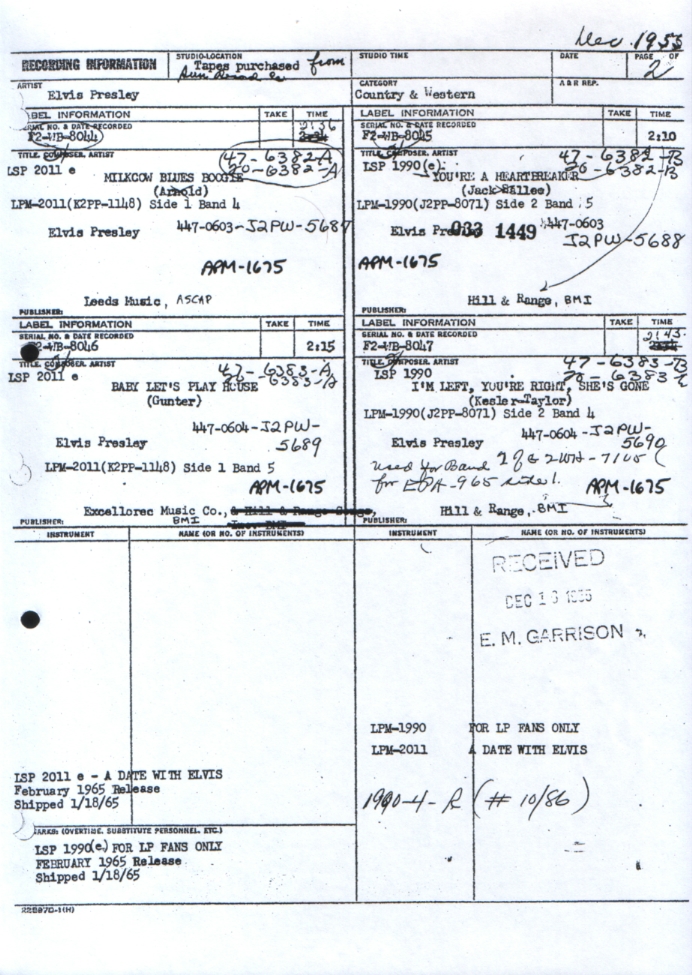 Dec. 1955
RECORDING INFORMATION
STUDIO-LOCATION
Tapes purchased from
Sun Record Co
STUDIO TIME
DATE
PAGE OF
2
ARTIST
Elvis Presley
CATEGORY
Country & Western
A & R REP.
LABEL INFORMATION
TAKE
TIME
SERIAL NO. & DATE RECORDED
F2-WB-8044
2:36
TITLE, COMPOSER, ARTIST
47-6382-A
20-6382-A
LSP 2011 e
MILKCOW BLUES BOOGIE
(Arnold)
LPM-2011(K2PP-1148) Side 1 Band 4
447-0603-J2PW-5687
Elvis Presley
APM-1675
Leeds Music, ASCAP
PUBLISHER:
LABEL INFORMATION
TAKE
TIME
SERIAL NO. & DATE RECORDED
F2-WB-8045
2:10
TITLE, COMPOSER, ARTIST
47-6382-B
20-6382-B
LSP 1990(e)
YOU'RE A HEARTBREAKER
(Jack Sallee)
LPM-1990(J2PP-8071) Side 2 Band 5
Elvis Pre
033 1449
447-0603
J2PW-5688
APM-1675
Hill & Range, BMI
PUBLISHER:
LABEL INFORMATION
TAKE
TIME
SERIAL NO. & DATE RECORDED
F2-WB-8046
2:15
TITLE, COMPOSER, ARTIST
47-6383-A
20-6383-A
LSP 2011 e
BABY LET'S PLAY HOUSE
(Gunter)
447-0604-J2PW-
5689
Elvis Presley
LPM-2011(K2PP-1148) Side 1 Band 5
APM-1675
Excellorec Music Co.,
BMI
PUBLISHER:
LABEL INFORMATION
TAKE
TIME
SERIAL NO. & DATE RECORDED
F2-WB-8047
2:43
TITLE, COMPOSER, ARTIST
47-6383-B
LSP 1990
I'M LEFT, YOU'RE RIGHT, SHE'S GONE
(Kesler-Taylor)
LPM-1990(J2PP-8071) Side 2 Band 4
447-0604-J2PW-
5690
Elvis Presley
used for Band
for EPA-965 side 1.
APM-1675
Hill & Range, BMI
PUBLISHER:
INSTRUMENT
NAME (OR NO. OF INSTRUMENTS)
INSTRUMENT
NAME (OR NO. OF INSTRUMENTS)
RECEIVED
DEC 13 1955
E. M. GARRISON
LPM-1990 FOR LP FANS ONLY
LPM-2011 A DATE WITH ELVIS
1990-4-R (#10/86)
LSP 2011 e - A DATE WITH ELVIS
February 1965 Release
Shipped 1/18/65
(OVERTIME, SUBSTITUTE PERSONNEL, ETC.)
LSP 1990(e) FOR LP FANS ONLY
FEBRUARY 1965 Release
Shipped 1/18/65